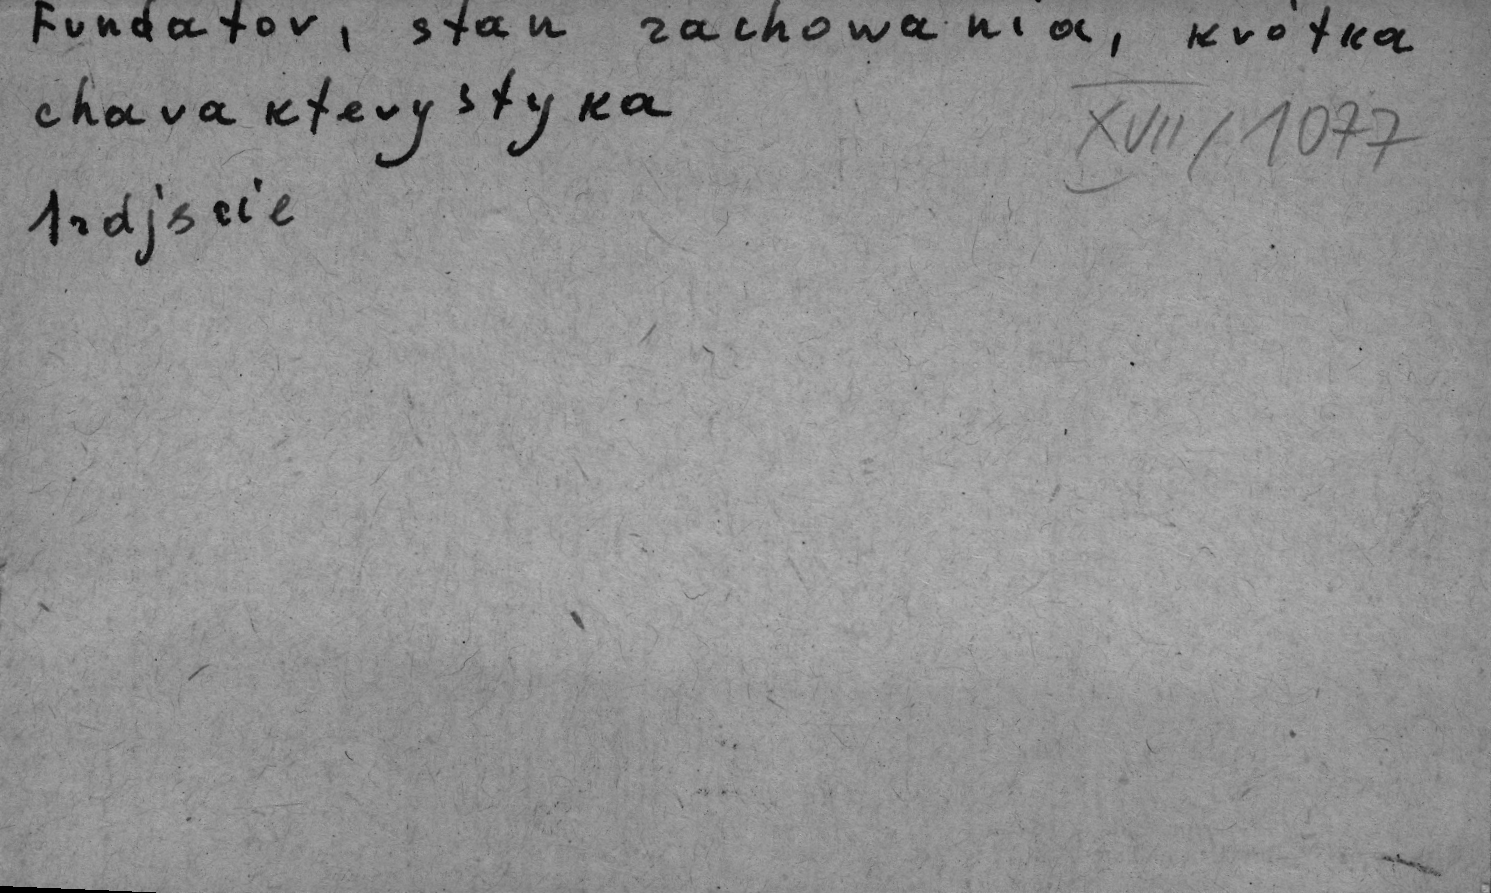 Fundator, stan zachowania, krótka
charakterystyka
XVII/1077
1 zdjscie